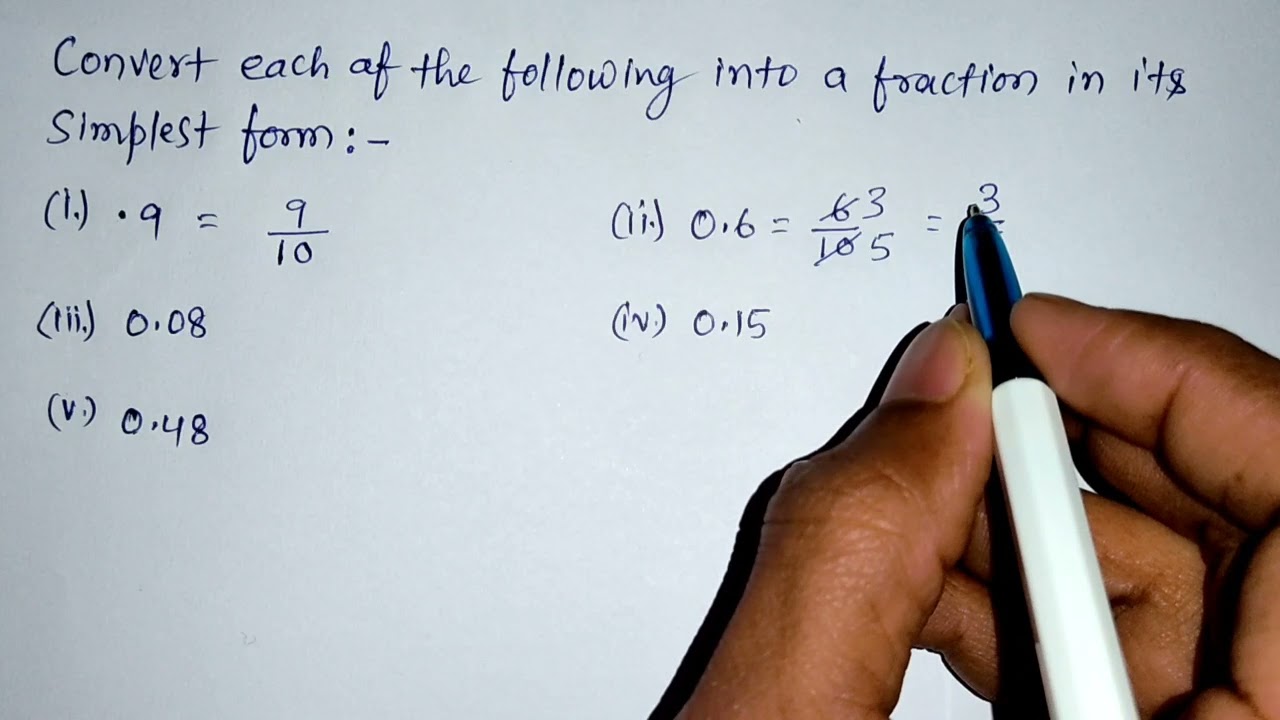 Convert each af the following into a fraction in its
Simplest form:-
(i.) .9 = 9/10
(ii.) 0.6 = 6/10 3/5 = 3
(iii.) 0.08
(iv.) 0.15
(v.) 0.48